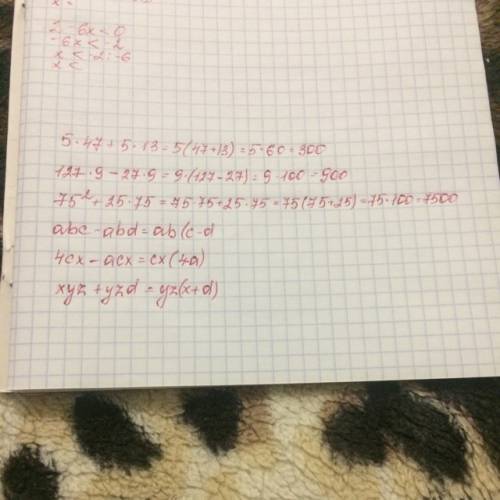 2 - 6x < 0
- 6x < - 2
x < - 2 : - 6
x <
5·47 + 5·13 = 5(47+13) = 5·60 = 300
127·9 - 27·9 = 9·(127-27) = 9·100 = 900
75² + 25·75 = 75·75+25·75 = 75(75+25) = 75·100 = 7500
abc - abd = ab(c-d
4cx - acx = cx(4a)
xyz + yzd = yz(x+d)